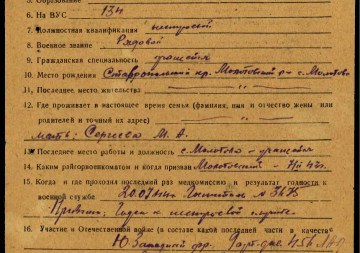 5. Образование
6. На ВУС 134
7. Должностная квалификация
8. Военное звание Рядовой
9. Гражданская специальность учащийся
10. Место рождения Ставропольский кр. Молотовский р-н с. Молотово
11. Последнее место жительства — „ — „ —
12. Где проживает в настоящее время семья (фамилия, имя и отчество жены или
родителей и точный их адрес)
мать: Сергеева М. А.
13. Последнее место работы и должность с. Молотово - учащийся
14. Каким райгорвоенкоматом и когда призван Молотовский -
15. Когда и где проходил последний раз медкомиссию и результат годности к
военной службе 20.07 Госпиталь № 3675
Признан: Годен к строевой службе.
16. Участие в Отечественной войне (в составе какой последней части и в качестве
Ю. Западный фр.